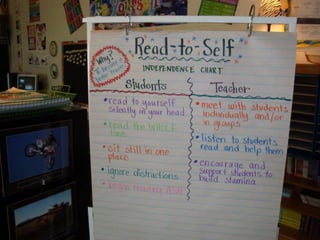 Read-to-Self
INDEPENDENCE CHART
Why?
To become a
better reader!
Students
• read to yourself
silently in your head
• read the WHOLE
time
• sit still in one
place
• ignore distractions
• begin reading ASAP
Teacher
• meet with students
individually and/or
in groups
• listen to students
read and help them
• encourage and
support students to
build stamina